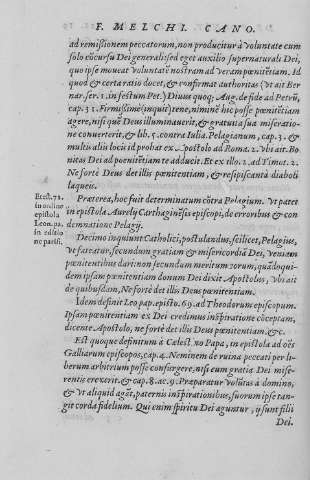 F. MELCHI. CANO.
ad remissionem peccatorum, non producitur à voluntate cum
solo cōcursu Dei generali: sed eget auxilio supernaturali Dei,
quo ipse moueat voluntatē nostram ad veram pœnitētiam. Id
quod & certa ratio docet, & confirmat authoritas (vt ait Ber
nar. ser. 1. in festum Pet.) Diuus quoq; Aug. de fide ad Petrū,
cap. 31. Firmissimè (inquit) tene, neminē hic posse pœnitētiam
agere, nisi quē Deus illuminauerit, & gratuita sua miseratio-
ne conuerterit, & lib. 5. contra Iulia. Pelagianum, cap. 3. &
multis aliis locis id probat ex Apostolo ad Roma. 2. vbi ait. Bo
nitas Dei ad poenitētiam te adducit. Et ex illo. 2. ad Timot. 2.
Ne fortè Deus det illis pœnitentiam, & resipiscant à diaboli
laqueis.
Præterea, hoc fuit determinatum cōtra Pelagium. Vt patet
in epistola Aurelij Carthaginēsis episcopi, de erroribus & con
demnatione Pelagij.
Epist. 72.
in ordine
epistola
Leon. pa.
in editio
ne parisi.
Decimo inquiunt Catholici, postulandus, scilicet, Pelagius,
vt fateatur, secundum gratiam & misericordiā Dei, veniam
pœnitentibus dari: non secundum meritum eorum, quādoqui-
dem ipsam pœnitentiam donum Dei dixit Apostolus, vbi ait
de quibusdam, Ne fortè det illis Deus pœnitentiam.
Idem definit Leo pap. episto. 69. ad Theodorum episcopum.
Ipsam pœnitentiam ex Dei credimus inspiratione cōceptam,
dicente Apostolo, ne fortè det illis Deus pœnitentiam, &c.
Est quoque definitum à Cælest. no Papa, in epistola ad oēs
Galliarum episcopos, cap. 4. Neminem de ruina peccati per li-
berum arbitrium posse consurgere, nisi eum gratia Dei mise-
rentis erexerit, & cap. 8. ac. 9. Præparatur volūtas à domino,
& vt aliquid agāt, paternis inspirationibus, suorum ipse tan-
git corda fidelium. Qui enim spiritu Dei aguntur, ij sunt filii
Dei.